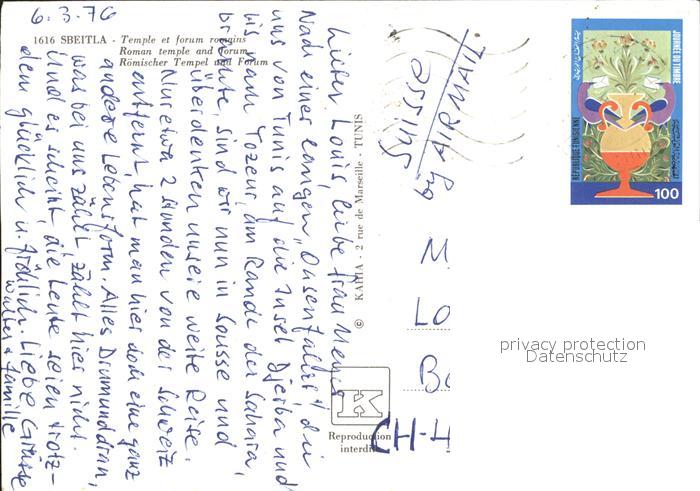 6.3.76
1616 SBEITLA - Temple et forum romains
Roman temple and Forum
Römischer Tempel und Forum
Lieber Louis, liebe Frau
Nach einer langen „Oasenfahrt", die
uns von Tunis auf die Insel Djerba und
bis nach Tozeur, am Rande der Sahara,
brachte, sind wir nun in Sousse und
überdenken unsere weite Reise.
Nur etwa 2 Stunden von der Schweiz
entfernt, hat man hier doch eine ganz
andere Lebensform. Alles Drumunddran,
was bei uns zählt, zählt hier nicht.
Und es scheint, die Leute seien trotz-
dem glücklich u. fröhlich. Liebe Grüsse
Walter & Familie
© KAHIA - 2 rue de Marseille - TUNIS
Reproduction
interdite
Suisse
by AIRMAIL
M.
LO
Ba
CH-4
JOURNÉE DU TIMBRE
REPUBLIQUE TUNISIENNE
100
privacy protection
Datenschutz